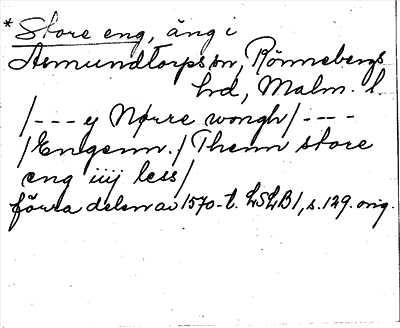 * Store eng, äng i
Asmundtorps sn, Rönnebergs
hrd, Malm. l.
/--- y Nørre wongh/---
/Engenn./ Thenn store
eng iiij less/
förra delen av 1570-t. LSLB1, s. 129. orig.